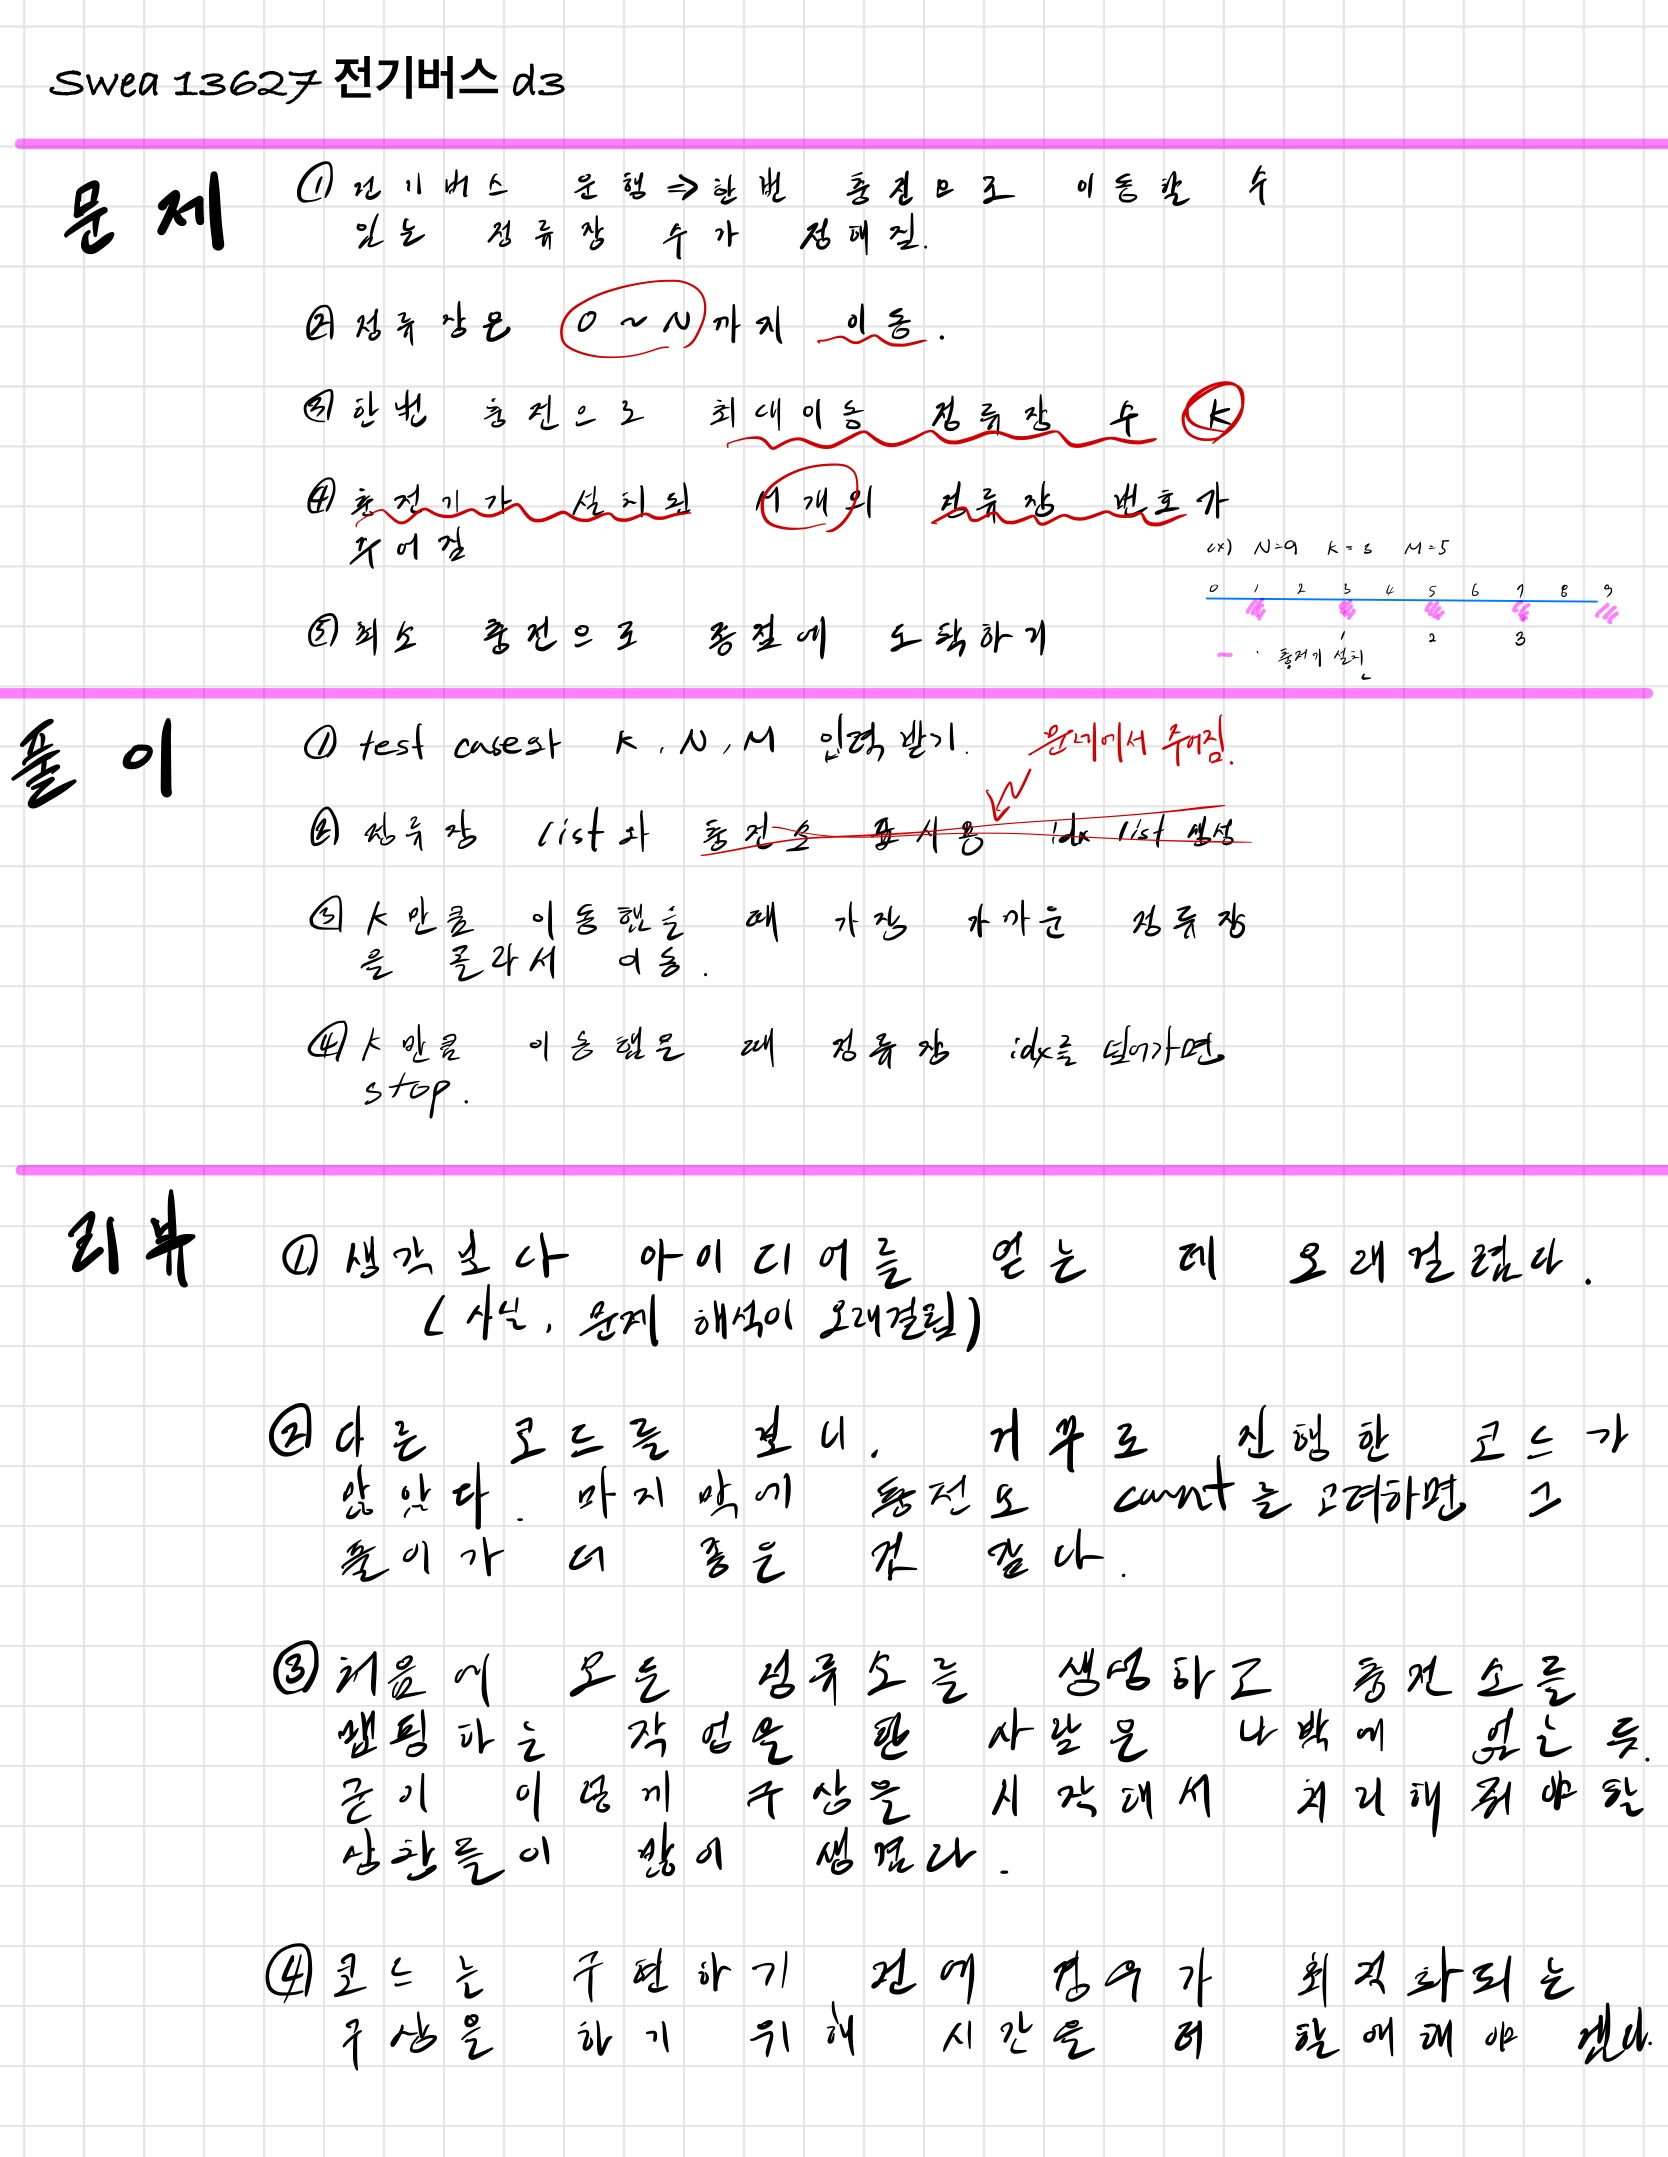 Swea 13627 전기버스 d3
문제
① 전기버스 운행⇒한번 충전으로 이동할 수
있는 정류장 수가 정해짐.
② 정류장은 0 ~ N까지 이동.
③ 한번 충전으로 최대이동 정류장 수 K
④ 충전기가 설치된 M개의 정류장 번호가
주어짐
ex) N=9 K=3 M=5
0 1 2 3 4 5 6 7 8 9
1 2 3
충전기 설치
⑤ 최소 충전으로 종점에 도착하기
풀이
① test case와 K, N, M 입력 받기.
문제에서 주어짐.
② 정류장 list와 충전소 표시용 idx list 생성
③ K만큼 이동했을 때 가장 가까운 정류장
을 골라서 이동.
④ K만큼 이동했을 때 정류장 idx를 넘어가면
stop.
리뷰
① 생각보다 아이디어를 얻는 데 오래걸렸다.
(사실, 문제 해석이 오래걸림)
② 다른 코드를 보니, 거꾸로 진행한 코드가
많았다. 마지막에 충전도 count를 고려하면 그
풀이가 더 좋은 것 같다.
③ 처음에 모든 정류소를 생성하고 충전소를
맵핑하는 작업을 한 사람은 나밖에 없는 듯.
굳이 이렇게 구상을 시작해서 처리해줘야할
상황들이 많이 생겼다.
④ 코드는 구현하기 전에 경우가 최적화되는
구상을 하기 위해 시간을 더 할애해야 겠다.